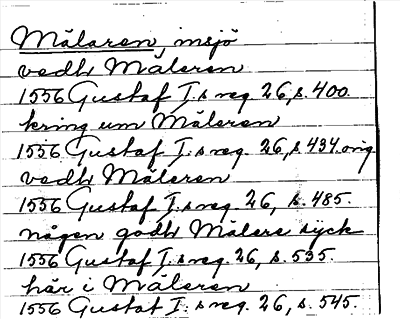 Mälaren, insjö
vedh Mäleren
1556 Gustaf I:s reg. 26, s. 400.
kring um Mäleren
1556 Gustaf I:s reg. 26, s. 434. orig.
vedh Mäleren
1556 Gustaf I:s reg. 26, s. 485.
någen godh Mälere syck
1556 Gustaf I:s reg. 26, s. 535.
här i Mäleren
1556 Gustaf I:s reg. 26, s. 545.